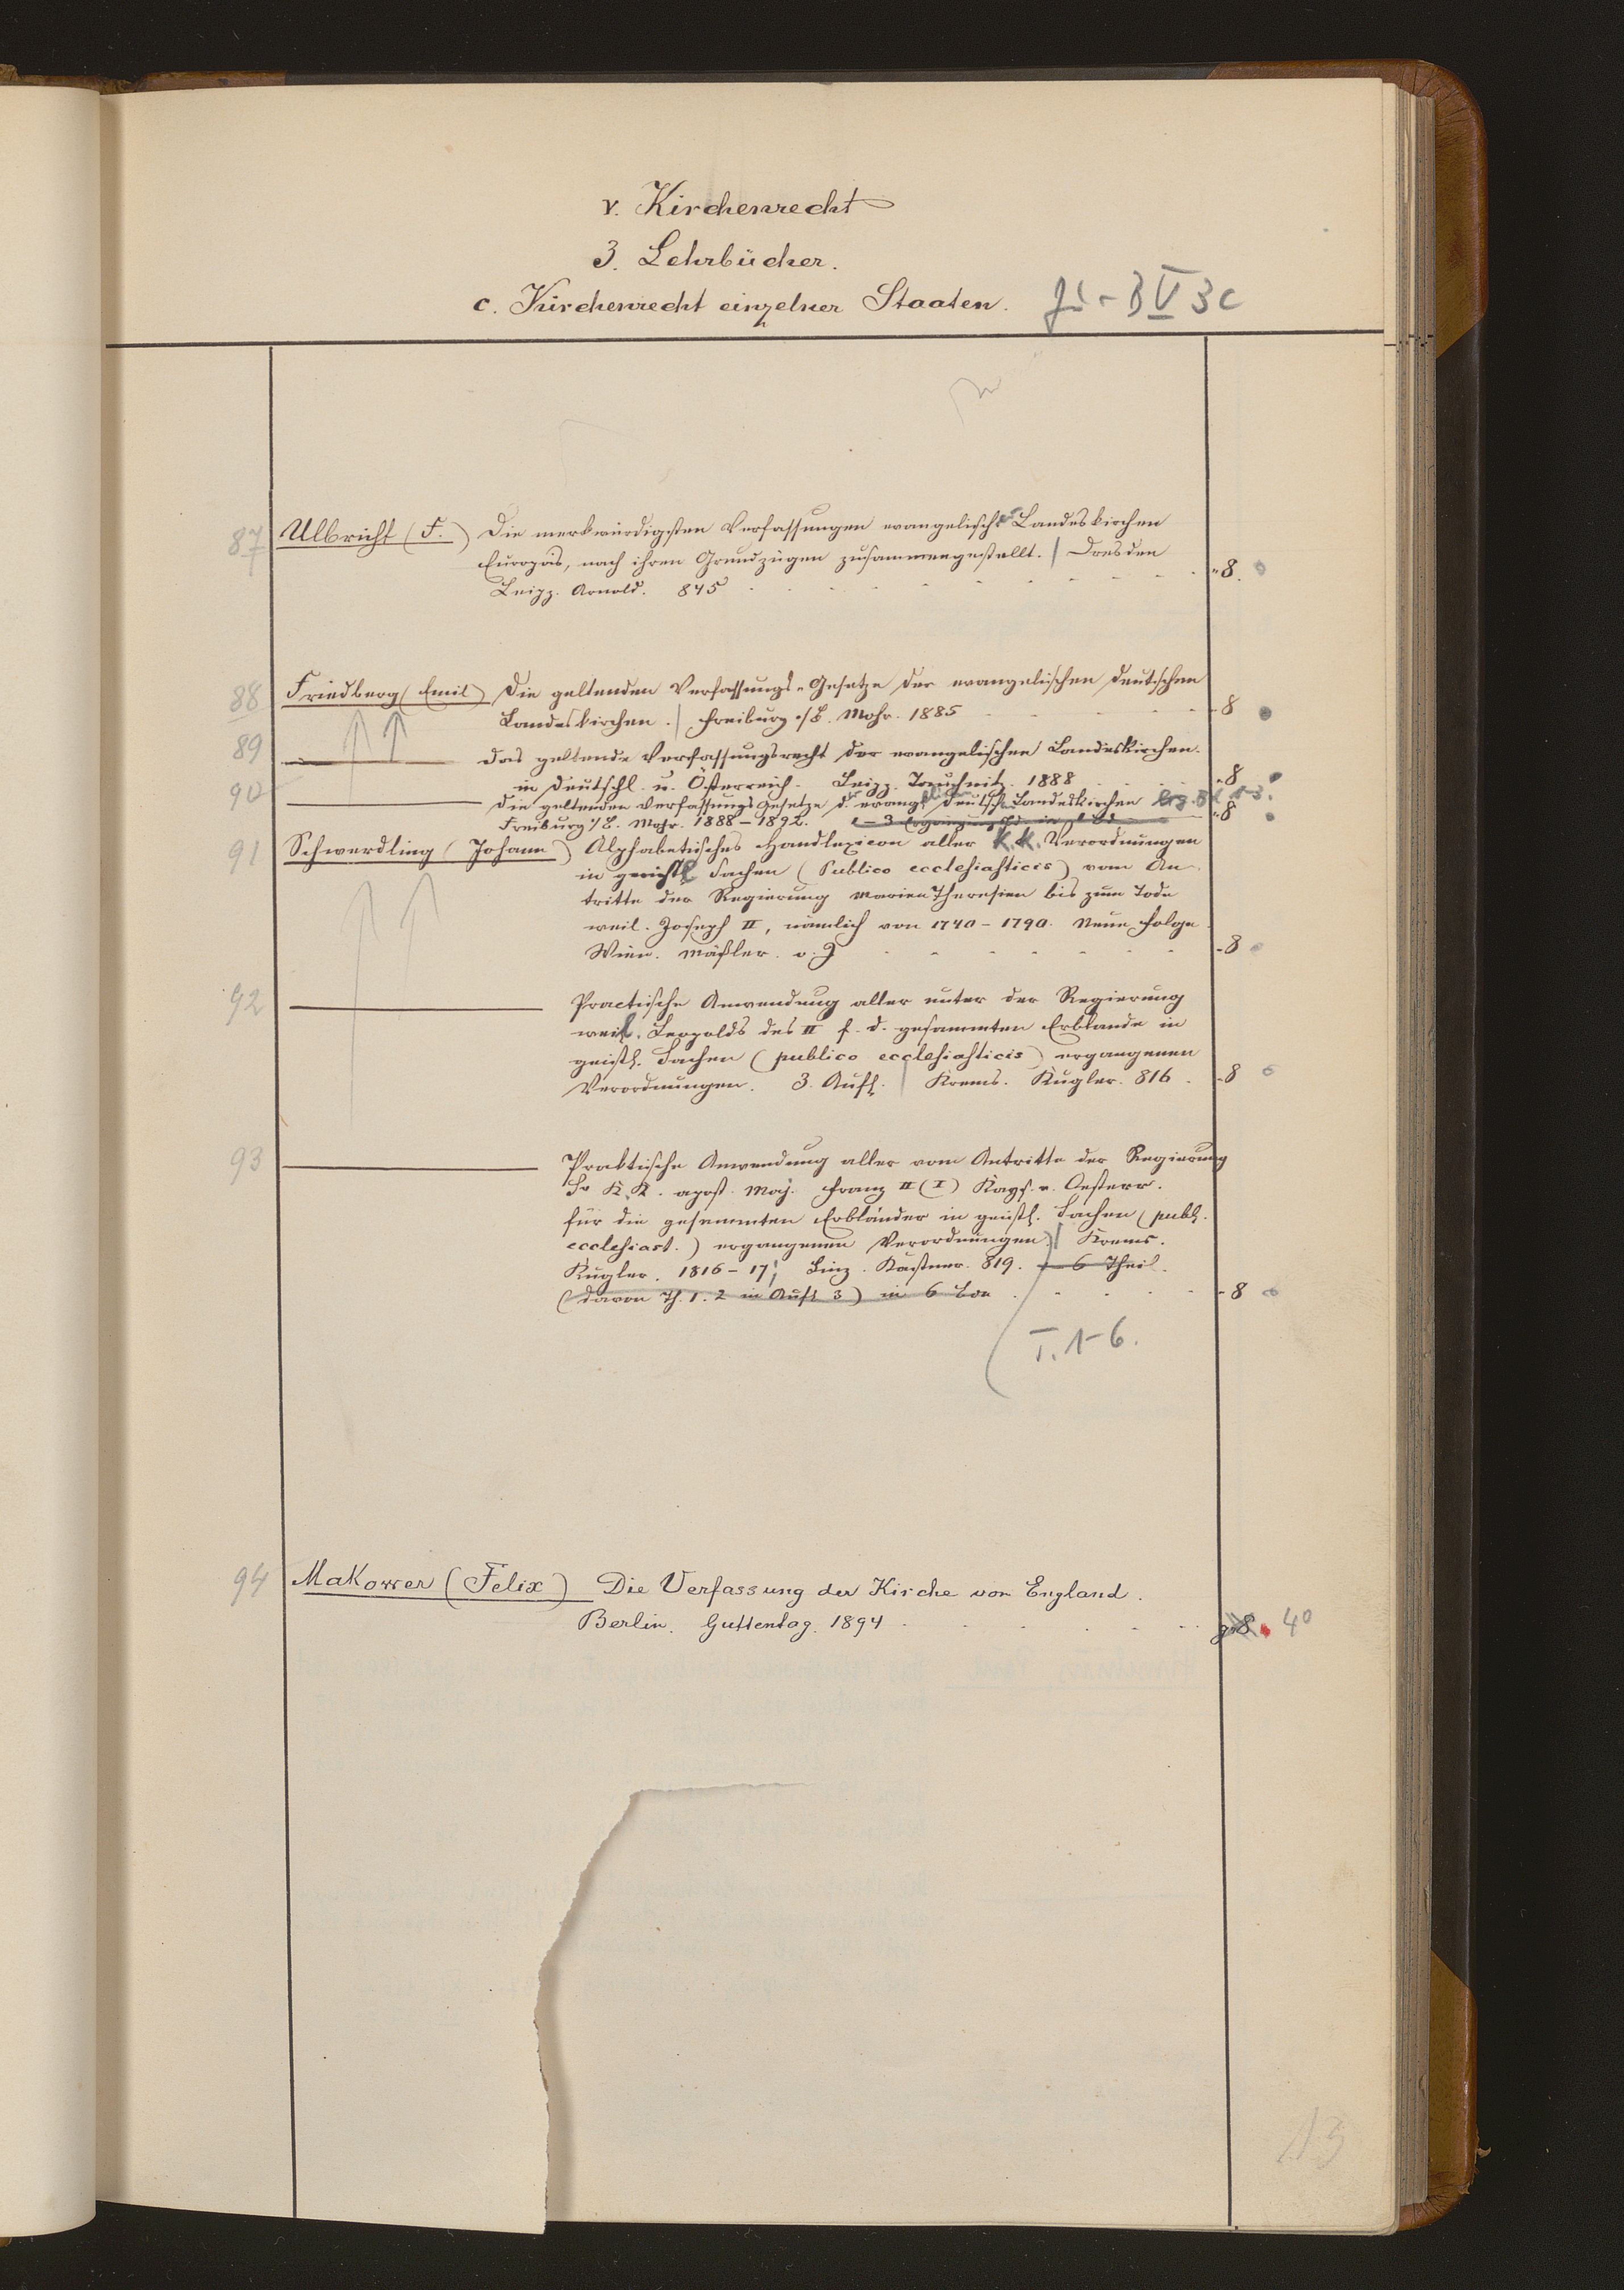 V. Kirchenrecht
3. Lehrbücher.
c. Kirchenrecht einzelner Staaten. B V 3c
87 Ulbricht (F.) Die merkwürdigsten Verfassungen evangelischer Landeskirchen
Europas, nach ihren Grundzügen zusammengestellt. | Dresden
Leipz. Arnold. 845 8.
88 Friedberg (Emil) Die geltenden Verfassungs-Gesetze der evangelischen deutschen
Landeskirchen. | Freiburg i/B. Mohr. 1885 8
89 Das geltende Verfassungsrecht der evangelischen Landeskirchen.
in Deutschl. u. Österreich. Leipz. Tauchnitz. 1888 8
90 Die geltenden Verfassungs Gesetze d. evang. deutsch. Landeskirchen Erg. Bd. 1-3.
Freiburg i/B. Mohr. 1888-1892. 1-3 8
91 Schwerdling (Johann) Alphabetisches Handlexicon aller K.K. Verordnungen
in geistl. Sachen (Publico ecclesiasticis) vom An-
tritte der Regierung Marien Theresien bis zum Tode
weil. Joseph II, nämlich von 1740-1790. Neue Folge
Wien. Mößler. o. J 8
92 Practische Anwendung aller unter der Regierung
weil. Leopolds des II f. d. gesammten Erblande in
geistl. Sachen (publico ecclesiasticis) ergangenen
Verordnungen. 3. Aufl. | Krems. Kugler. 816. 8
93 Praktische Anwendung aller vom Antritte der Regierung
Sr K.K. apost. Maj. Franz II (I) Kays. v. Oesterr.
für die gesammten Erbländer in geistl. Sachen (publ.
ecclesiast.) ergangenen Verordnungen. | Krems.
Kugler. 1816-17; Linz. Kastner. 819. 1-6 Theil.
(davon Th. 1. 2 in Aufl 3) in 6 8
T. 1-6.
94 Makower (Felix) Die Verfassung der Kirche von England.
Berlin. Guttentag. 1894 gr 8 4°
13